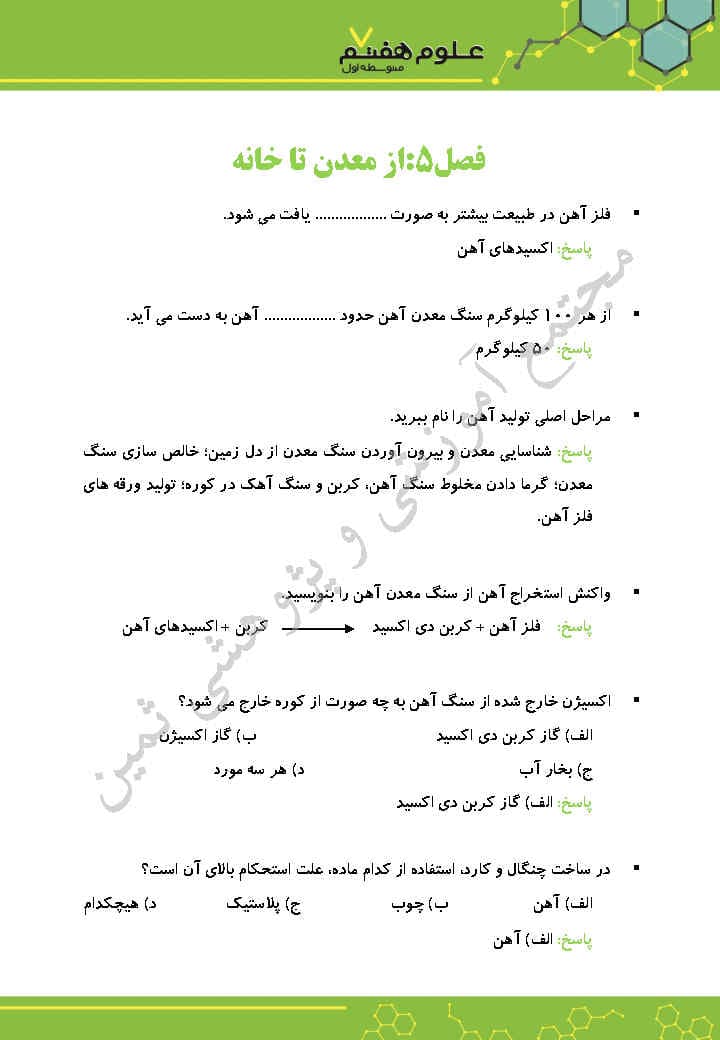 علوم هفتم
متوسطه اول
فصل۵:از معدن تا خانه
▪ فلز آهن در طبیعت بیشتر به صورت .................. یافت می شود.
پاسخ: اکسیدهای آهن
▪ از هر ۱۰۰ کیلوگرم سنگ معدن آهن حدود .................. آهن به دست می آید.
پاسخ: ۵۰ کیلوگرم
▪ مراحل اصلی تولید آهن را نام ببرید.
پاسخ: شناسایی معدن و بیرون آوردن سنگ معدن از دل زمین؛ خالص سازی سنگ
معدن؛ گرما دادن مخلوط سنگ آهن، کربن و سنگ آهک در کوره؛ تولید ورقه های
فلز آهن.
▪ واکنش استخراج آهن از سنگ معدن آهن را بنویسید.
پاسخ: فلز آهن + کربن دی اکسید ⟶ کربن + اکسیدهای آهن
▪ اکسیژن خارج شده از سنگ آهن به چه صورت از کوره خارج می شود؟
الف) گاز کربن دی اکسید ب) گاز اکسیژن
ج) بخار آب د) هر سه مورد
پاسخ: الف) گاز کربن دی اکسید
▪ در ساخت چنگال و کارد، استفاده از کدام ماده، علت استحکام بالای آن است؟
الف) آهن ب) چوب ج) پلاستیک د) هیچکدام
پاسخ: الف) آهن
مجتمع آموزشی و پژوهشی ثمین